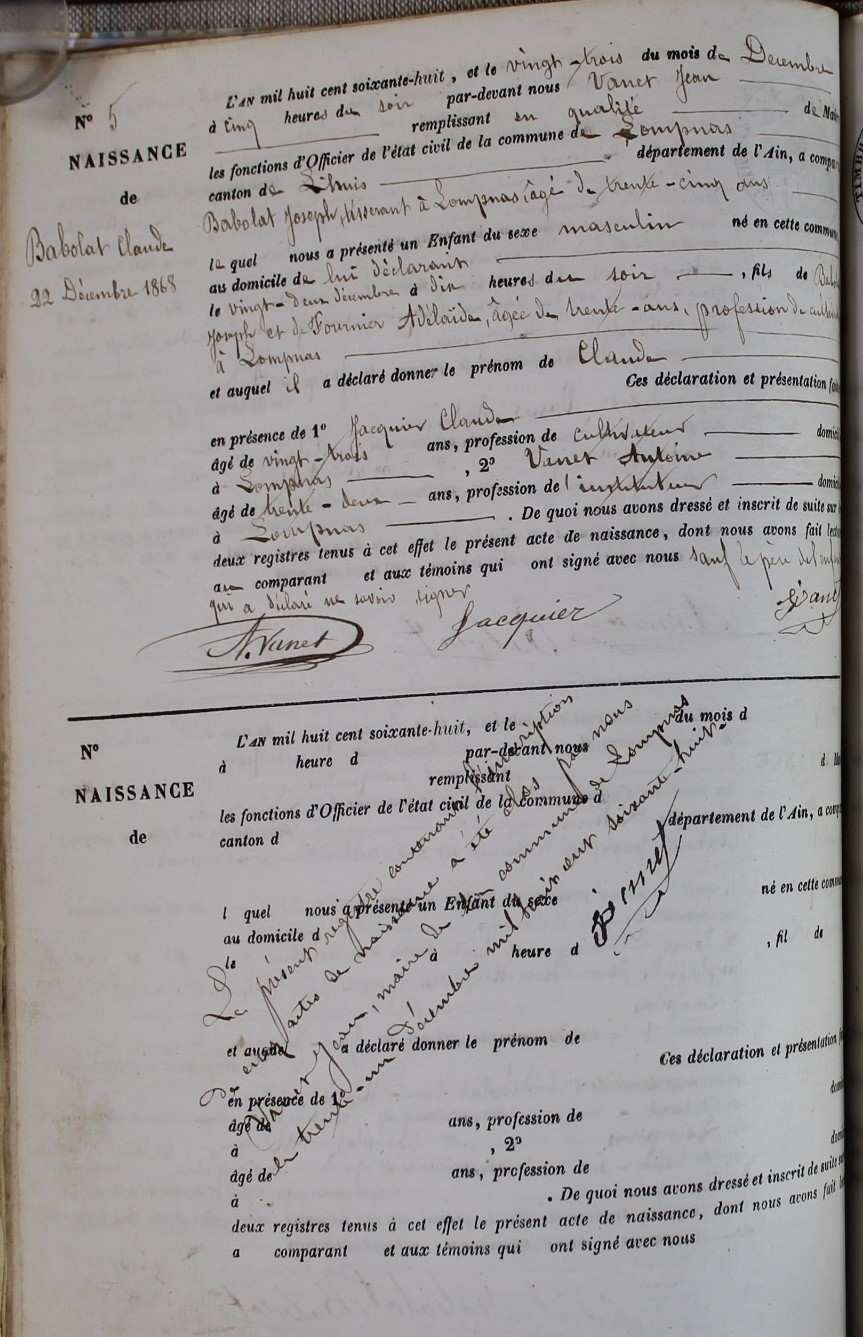 N° 5
NAISSANCE
de
Babolat Claude
22 Décembre 1868
L'AN mil huit cent soixante-huit, et le vingt-trois du mois de Décembre
à cinq heures du soir par-devant nous Vanet Jean
remplissant en qualité de Mai
les fonctions d'Officier de l'état civil de la commune de Lompnas
canton de Lhuis département de l'Ain, a compa
Babolat Joseph, tisserant à Lompnas, âgé de trente-cinq ans
le quel nous a présenté un Enfant du sexe masculin né en cette commun
au domicile de lui déclarant
le vingt-deux décembre à dix heures du soir , fils de Bab
Joseph et de Fournier Adélaïde, âgée de trente-ans, profession de cultiv
à Lompnas
et auquel il a déclaré donner le prénom de Claude
Ces déclaration et présentation fai
en présence de 1° Jacquier Claude
âgé de vingt-trois ans, profession de cultivateur domici
à Lompnas , 2° Vanet Antoine
âgé de trente-deux ans, profession de l'instituteur domici
à Lompnas . De quoi nous avons dressé et inscrit de suite sur l
deux registres tenus à cet effet le présent acte de naissance, dont nous avons fait lect
au comparant et aux témoins qui ont signé avec nous sauf le père de l'enfan
qui a déclaré ne savoir signer
A. Vanet Jacquier Vanet
N°
NAISSANCE
de
L'AN mil huit cent soixante-huit, et le du mois d
à heure d par-devant nous
remplissant d Ma
les fonctions d'Officier de l'état civil de la commune d
canton d département de l'Ain, a comp
l quel nous a présenté un Enfant du sexe né en cette commu
au domicile d
le à heure d , fil de
et auquel a déclaré donner le prénom de
Ces déclaration et présentation f
en présence de 1°
âgé de ans, profession de domi
à , 2°
âgé de ans, profession de domi
à . De quoi nous avons dressé et inscrit de suite su
deux registres tenus à cet effet le présent acte de naissance, dont nous avons fait le
a comparant et aux témoins qui ont signé avec nous
Le présent registre contenant l'inscription
de cinq actes de naissance a été clos par nous
Vanet Jean, maire de la commune de Lompnas
le trente-un décembre mil huit cent soixante-huit.
Vanet